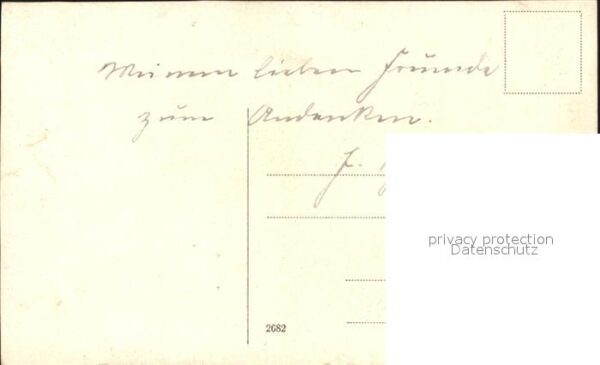 Meinem lieben Freunde
zum Andenken.
J.
privacy protection
Datenschutz
2682